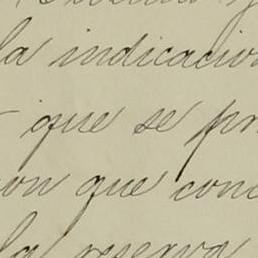 la indicacion
que se pr
on que conc
la reserva